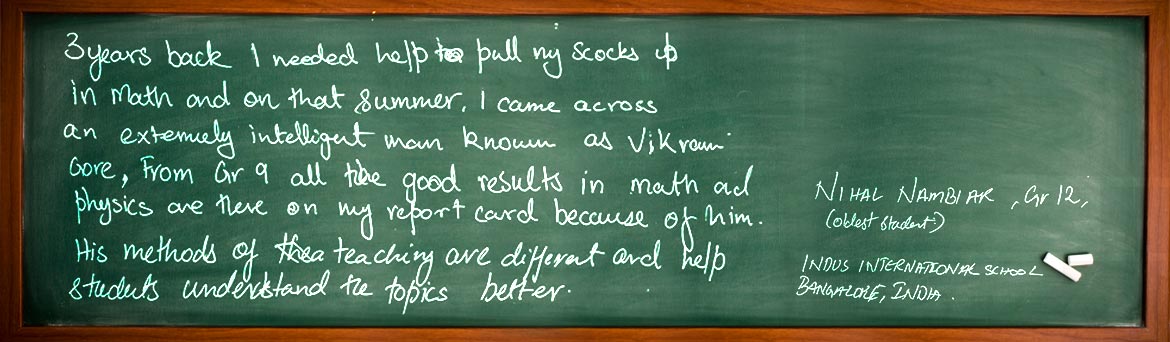 3 years back I needed help to pull my scocks up
in Math and on that summer, I came across
an extemely intelligent man known as Vikram
Gore, From Gr 9 all the good results in math ad
physics are there on my report card because of him.
His methods of teaching are different and help
students understand the topics better.
NIHAL NAMBIAR, Gr 12,
(oldest student)
INDUS INTERNATIONAL SCHOOL
BANGALORE, INDIA.